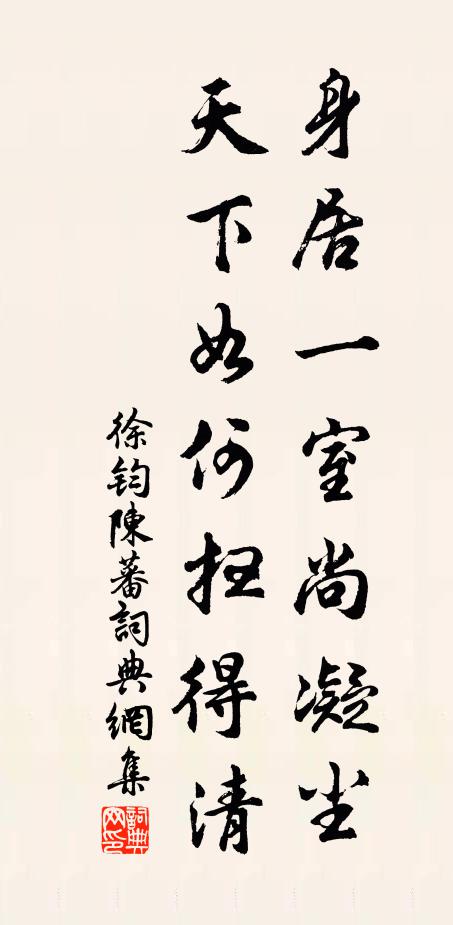 身居一室尚凝尘
天下如何扫得清
徐钧陳蕃詞典網集
詞典網印